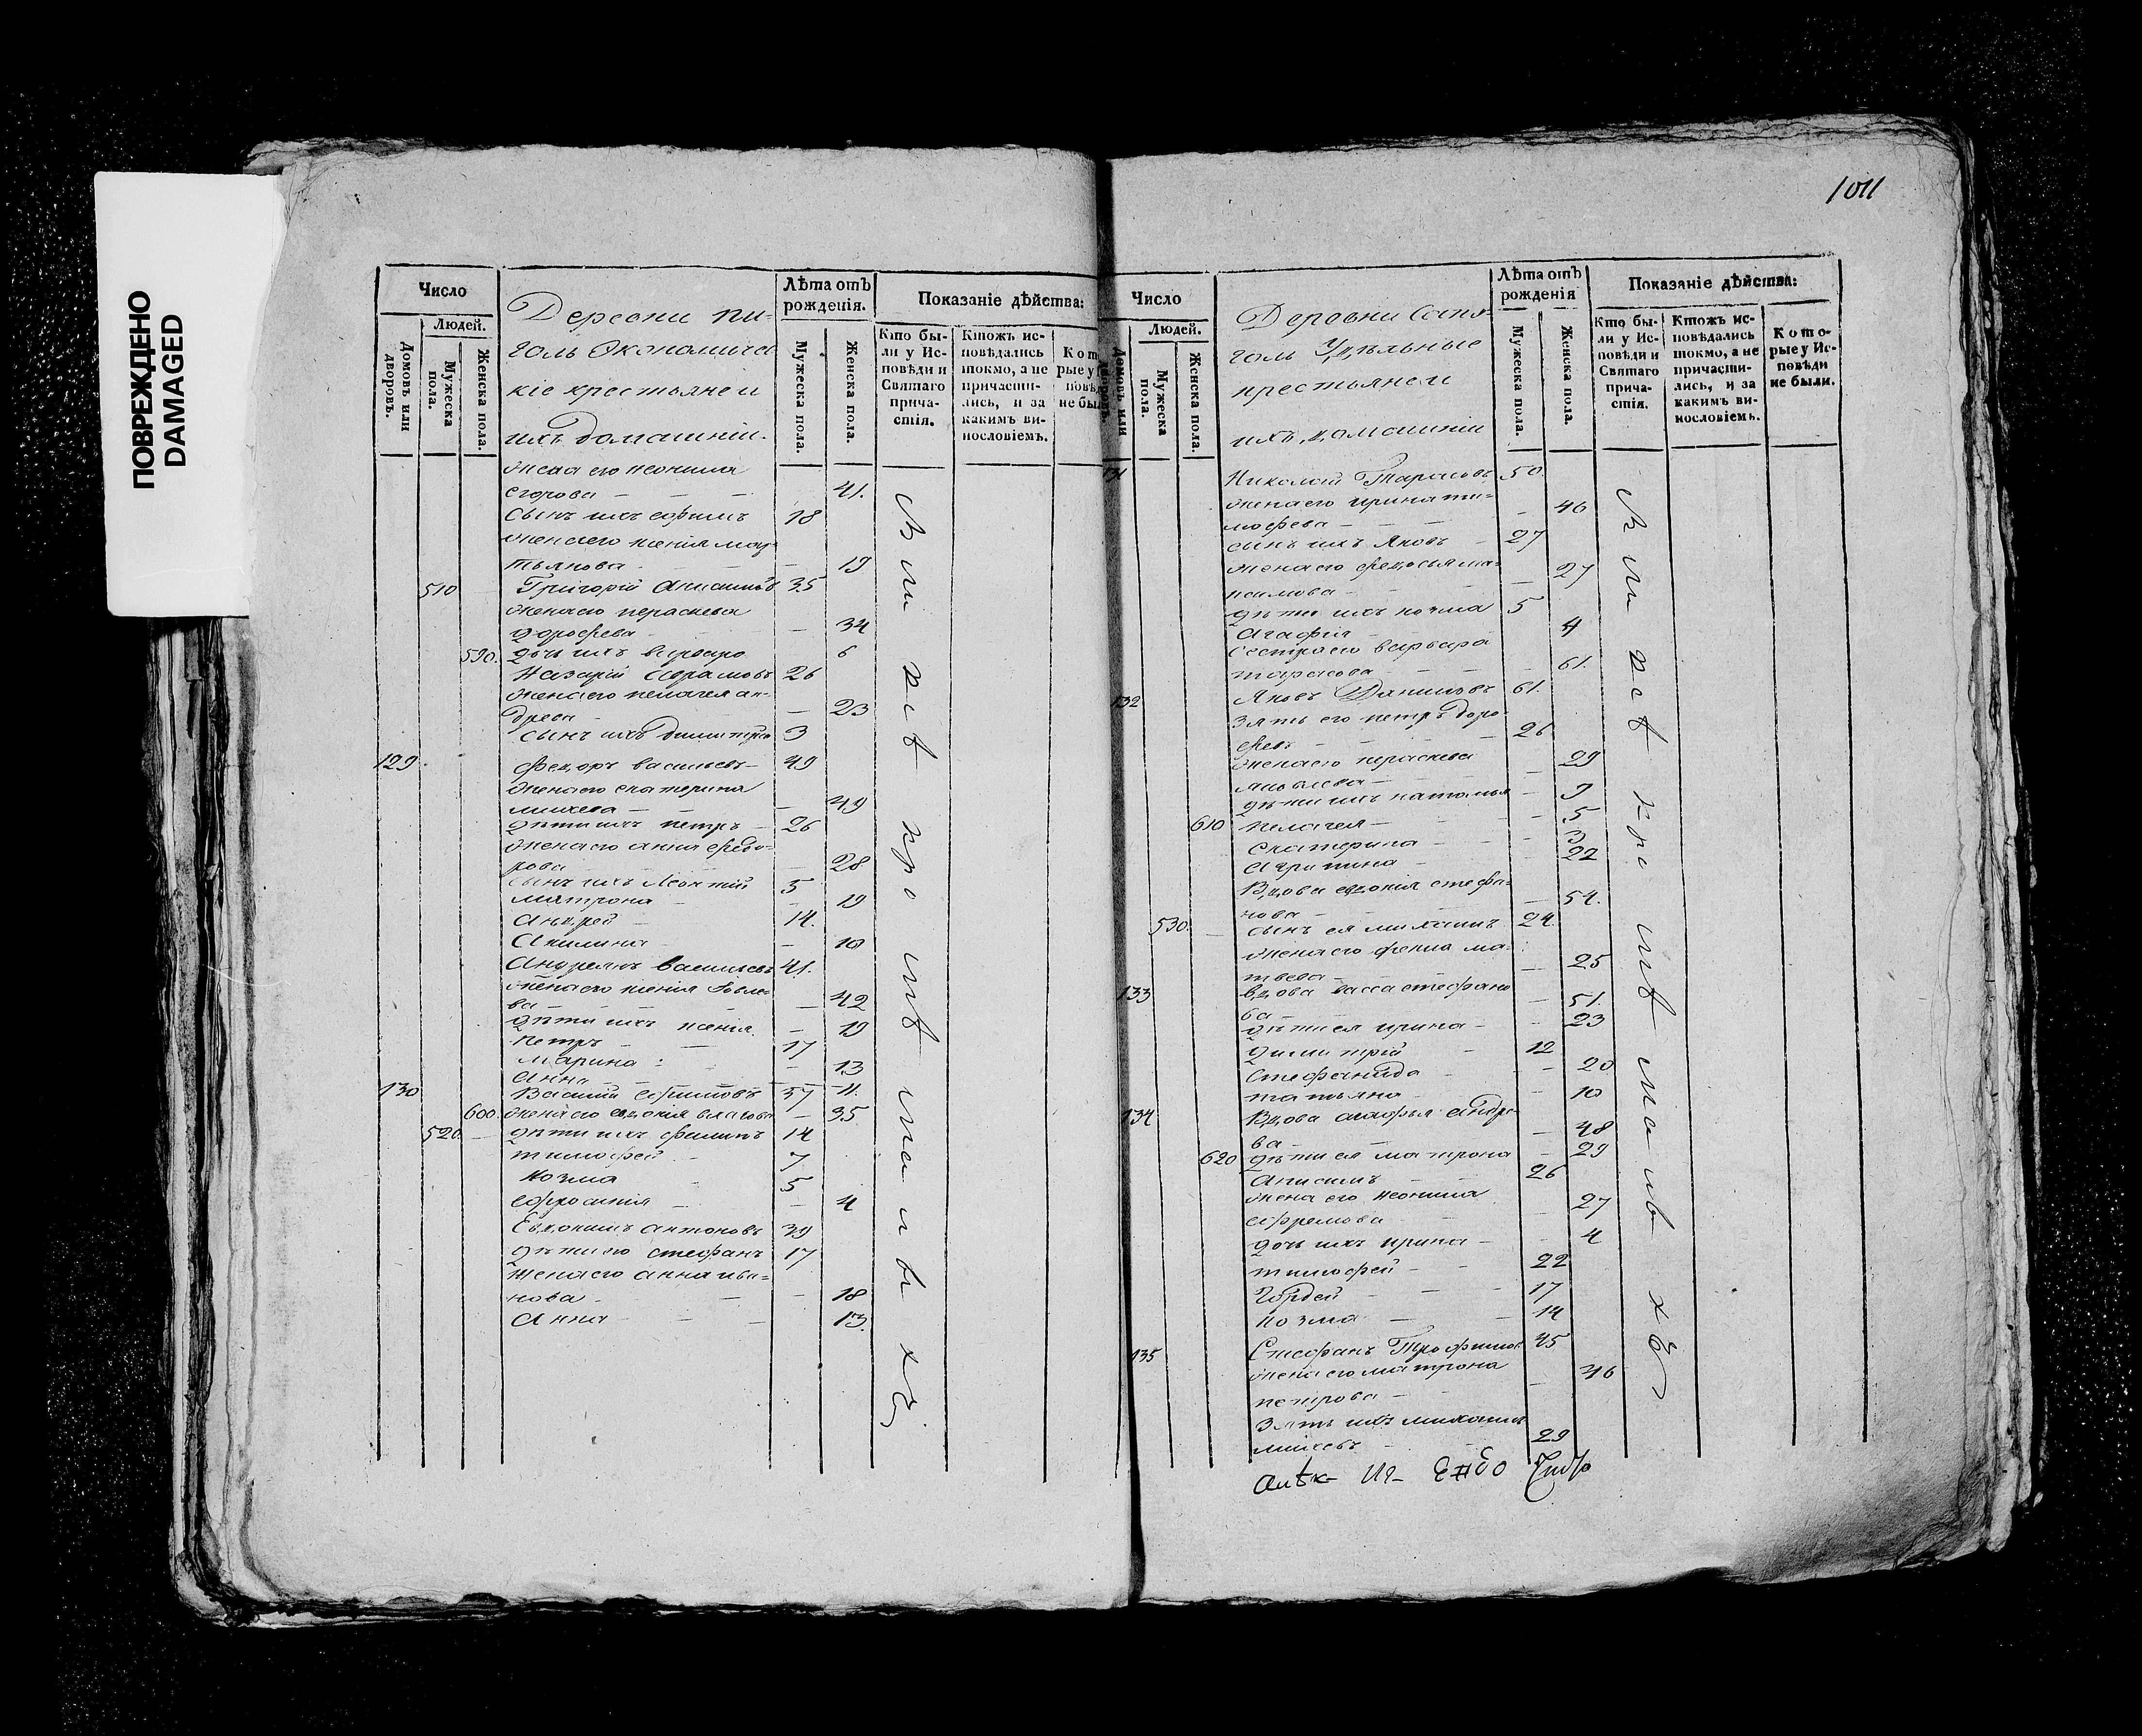 ПОВРЕЖДЕНО
DAMAGED
1011
Число
Людей.
Домовъ или дворовъ.
Мужеска пола.
Женска пола.
Деревни пи-
кіе крестьяне и
ихъ домашніи.
Лѣта отъ рожденія.
Мужеска пола.
Женска пола.
Показаніе дѣйства:
Кто бы-
ли у Ис-
повѣди и
Святаго
прича-
стія.
Ктожъ ис-
повѣдались
токмо, а не
причасти-
лись, и за
какимъ ви-
нословіемъ.
Кот
рые у
повѣд
не был
жена его неонила
егорова 41.
сынъ ихъ ефимъ 18
жена его ксенія мар-
тьянова 19
510 Григорій Анисимовъ 35
жена его параскева
дорофева 34
590. дочь ихъ варвара 6
Назарій Абрамовъ 26
жена его пелагея ан-
древа 23
сынъ ихъ димитрій 3
129 Федоръ васильевъ 49
жена его екатерина
михеева 49
дѣти ихъ петръ 26
жена его анна федо-
рова 28
сынъ ихъ Леонтій 5
матрона 19
андрей 14.
Акилина 10
Андреянъ васильевъ 41.
жена его ксенія
ва 42
дѣти ихъ ксенія 19
петръ 17
марина 13
анна 11.
130 Василій ефимовъ 37
600. жена его евдокия власова 35
520. дѣти ихъ филипъ 14
тимофей 7
козма 5
ефросинія 4
Евдокимъ антоновъ 39
дѣти его стефанъ 17
жена его анна ива-
нова 18
анна 13.
всѣ кро тѣ
Число
Людей.
Домовъ или дворовъ.
Мужеска пола.
Женска пола.
голь Удѣльные
крестьяне и
ихъ домашніи
Лѣта отъ рожденія
Мужеска пола.
Женска пола.
Показаніе дѣйства:
Кто бы-
ли у Ис-
повѣди и
Святаго
прича-
стія.
Ктожъ ис-
повѣдались
токмо, а не
причасти-
лись, и за
какимъ ви-
нословіемъ.
Кото-
рые у Ис-
повѣди
не были.
131 Николай Тарасовъ 50.
жена его ирина ти-
мофева 46
сынъ ихъ Яковъ 27
жена его федосья ма-
ксимова 27
дѣти ихъ козма 5
Агафія 4
Сестра его варвара
тарасова 61.
132 Яковъ Даниловъ 61.
Зять его петръ доро-
февъ 26
жена его параскева
яковлева 29
дѣти ихъ наталья 9
610 пелагея 5
екатерина 3
агрипина 22
Вдова евдокія стефа-
нова 54.
530. сынъ ея михаилъ 24.
жена его фекла ма-
твева 25
133 вдова васса стефано
ва 51.
дѣти ея ирина 23
димитрій 12
стефанида 20
татьяна 10
134 Вдова агафья андре
ва 48
620 дѣти ея матрона 29
Анисимъ 26
жена его неонила
ефремова 27
дочь ихъ ирина 4
тимофей 22
Гордей 17
козма 14
135 Стефанъ Трофимовъ 45
жена его матрона
петрова 46
Зять ихъ михаилъ
михевъ 29